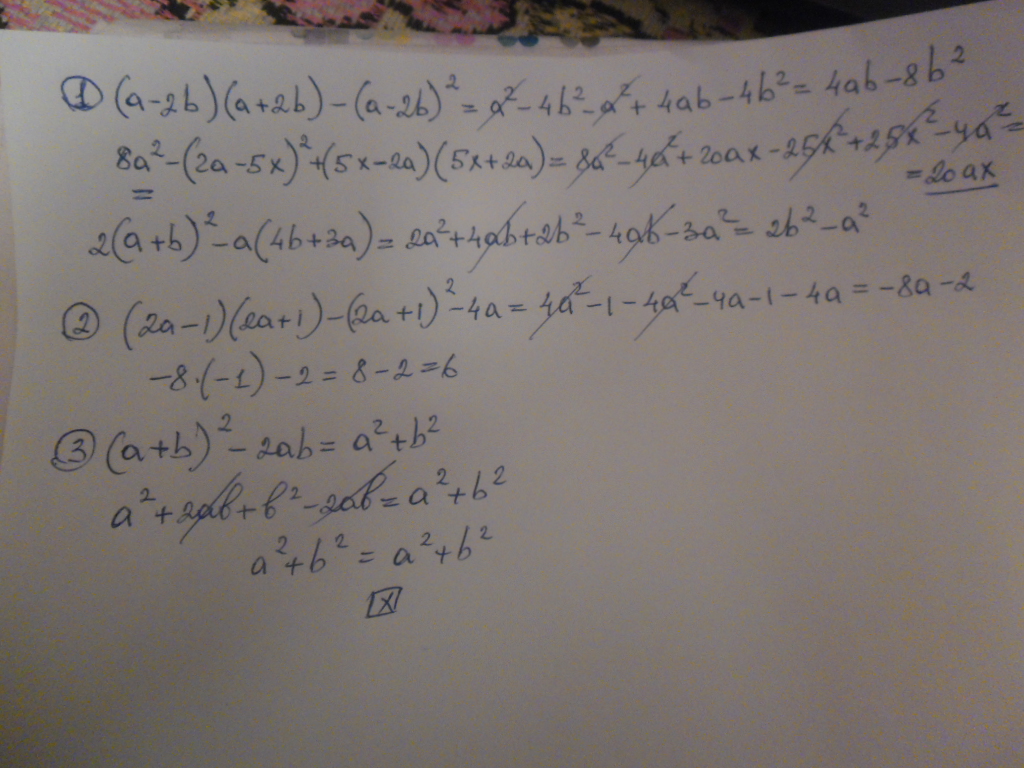 ① (a-2b)(a+2b)-(a-2b)² = a²-4b²-a²+4ab-4b² = 4ab-8b²
8a²-(2a-5x)²+(5x-2a)(5x+2a) = 8a²-4a²+20ax-25x²+25x²-4a² =
= 20ax
2(a+b)²-a(4b+3a) = 2a²+4ab+2b²-4ab-3a² = 2b²-a²
② (2a-1)(2a+1)-(2a+1)²-4a = 4a²-1-4a²-4a-1-4a = -8a-2
-8·(-1)-2 = 8-2 = 6
③ (a+b)²-2ab = a²+b²
a²+2ab+b²-2ab = a²+b²
a²+b² = a²+b²
x